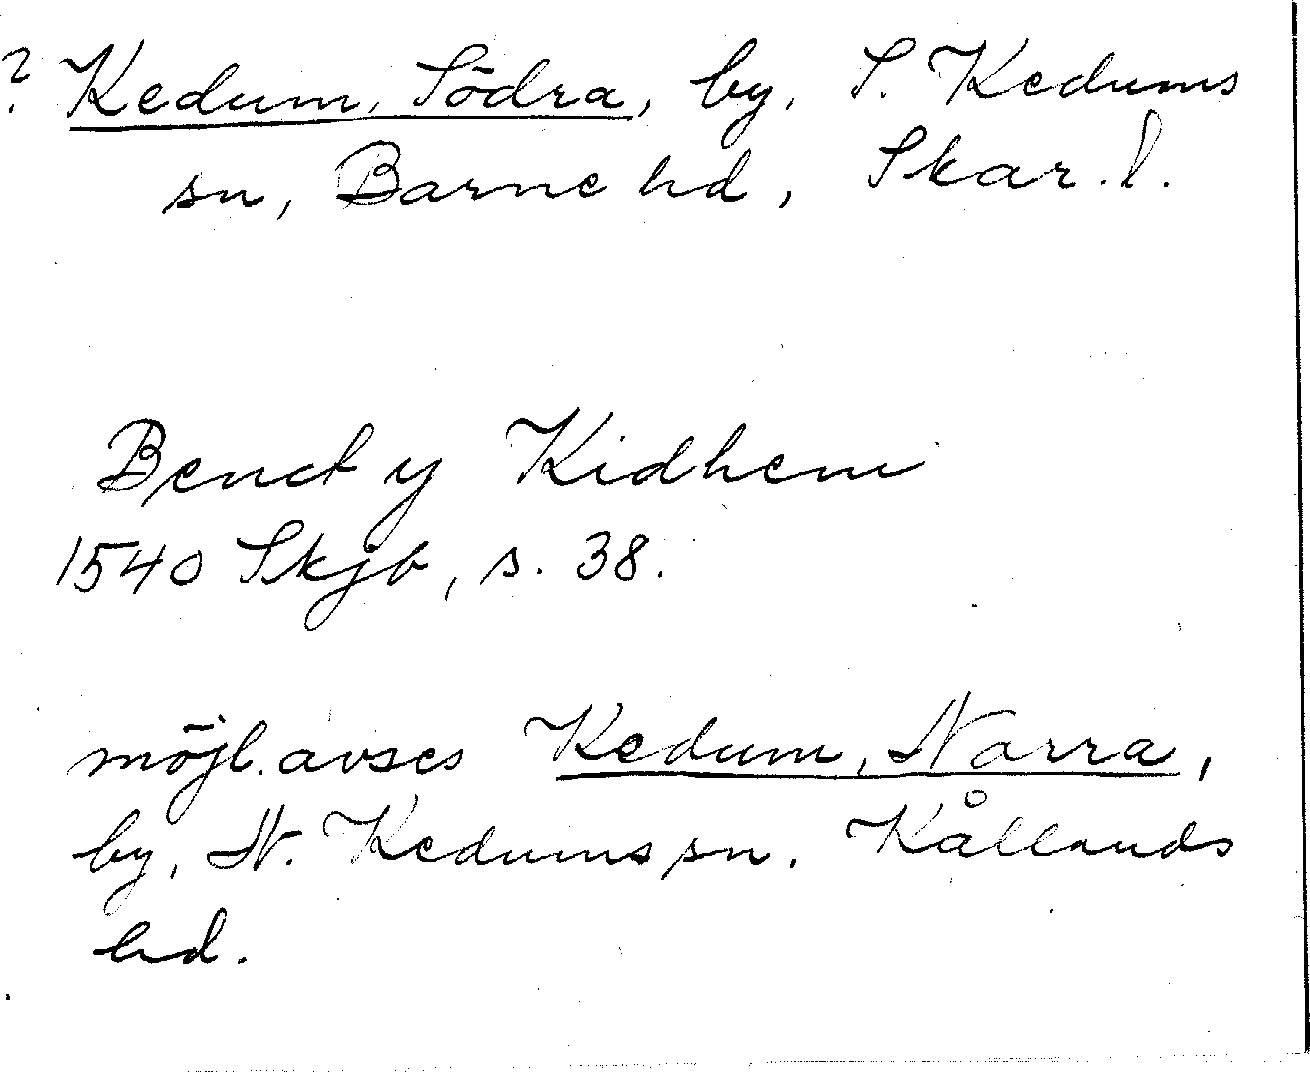 ? Kedum, Södra, by, S. Kedums
sn, Barne hd, Skar. l.
Benct y Kidhem
1540 Skjb, s. 38.
möjl. avses Kedum, Norra,
by, N. Kedums sn, Kållands
hd.